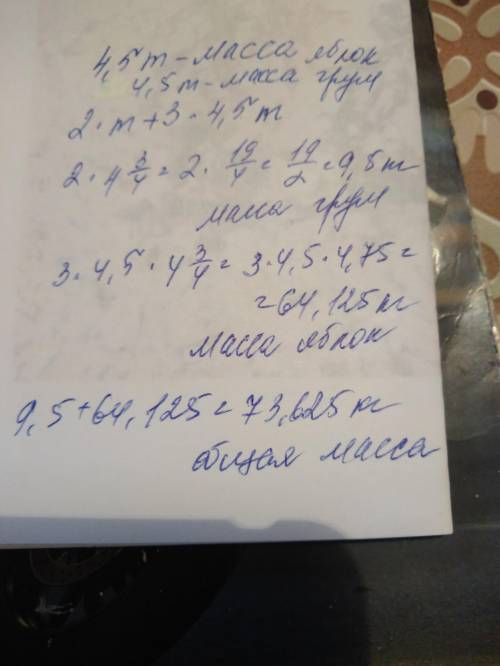 4,5m - масса яблок
4,5m - масса груш
2 · m + 3 · 4,5m
2 · 4 3/4 = 2 · 19/4 = 19/2 = 9,5 кг
масса груш
3 · 4,5 · 4 3/4 = 3 · 4,5 · 4,75 =
= 64,125 кг
масса яблок
9,5 + 64,125 = 73,625 кг
общая масса